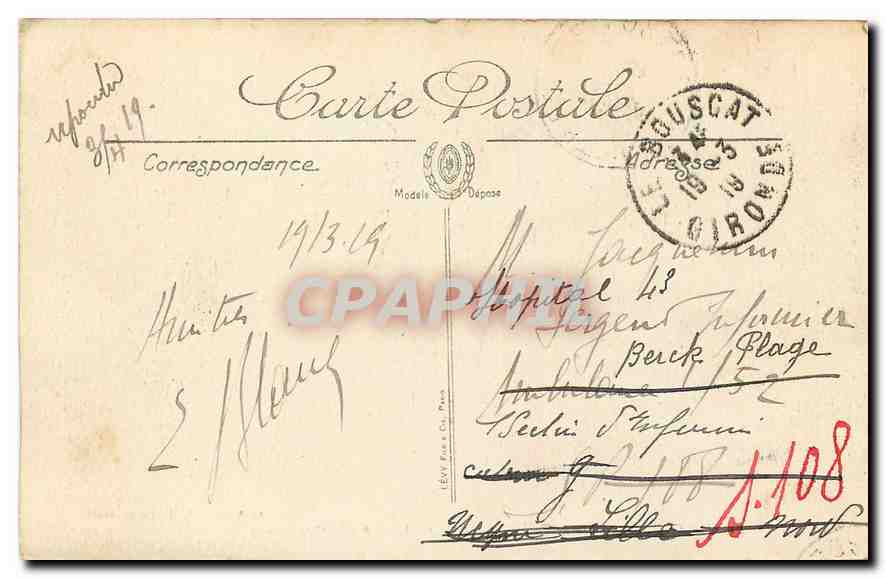 répondu
3/4 19.
Carte Postale
Correspondance
Adresse
Modèle Déposé
LE BOUSCAT
GIRONDE
19 3
19/3.19
Amitiés
E Blanc
M Jacquemin
Hospital 43
Sergent Infirmier
Berck Plage
Ambulance 1/52
Section d'Infirmi
S.P. 108
Lille Nord
S.108
CPARAMA
LÉVY FILS & Cie, PARIS